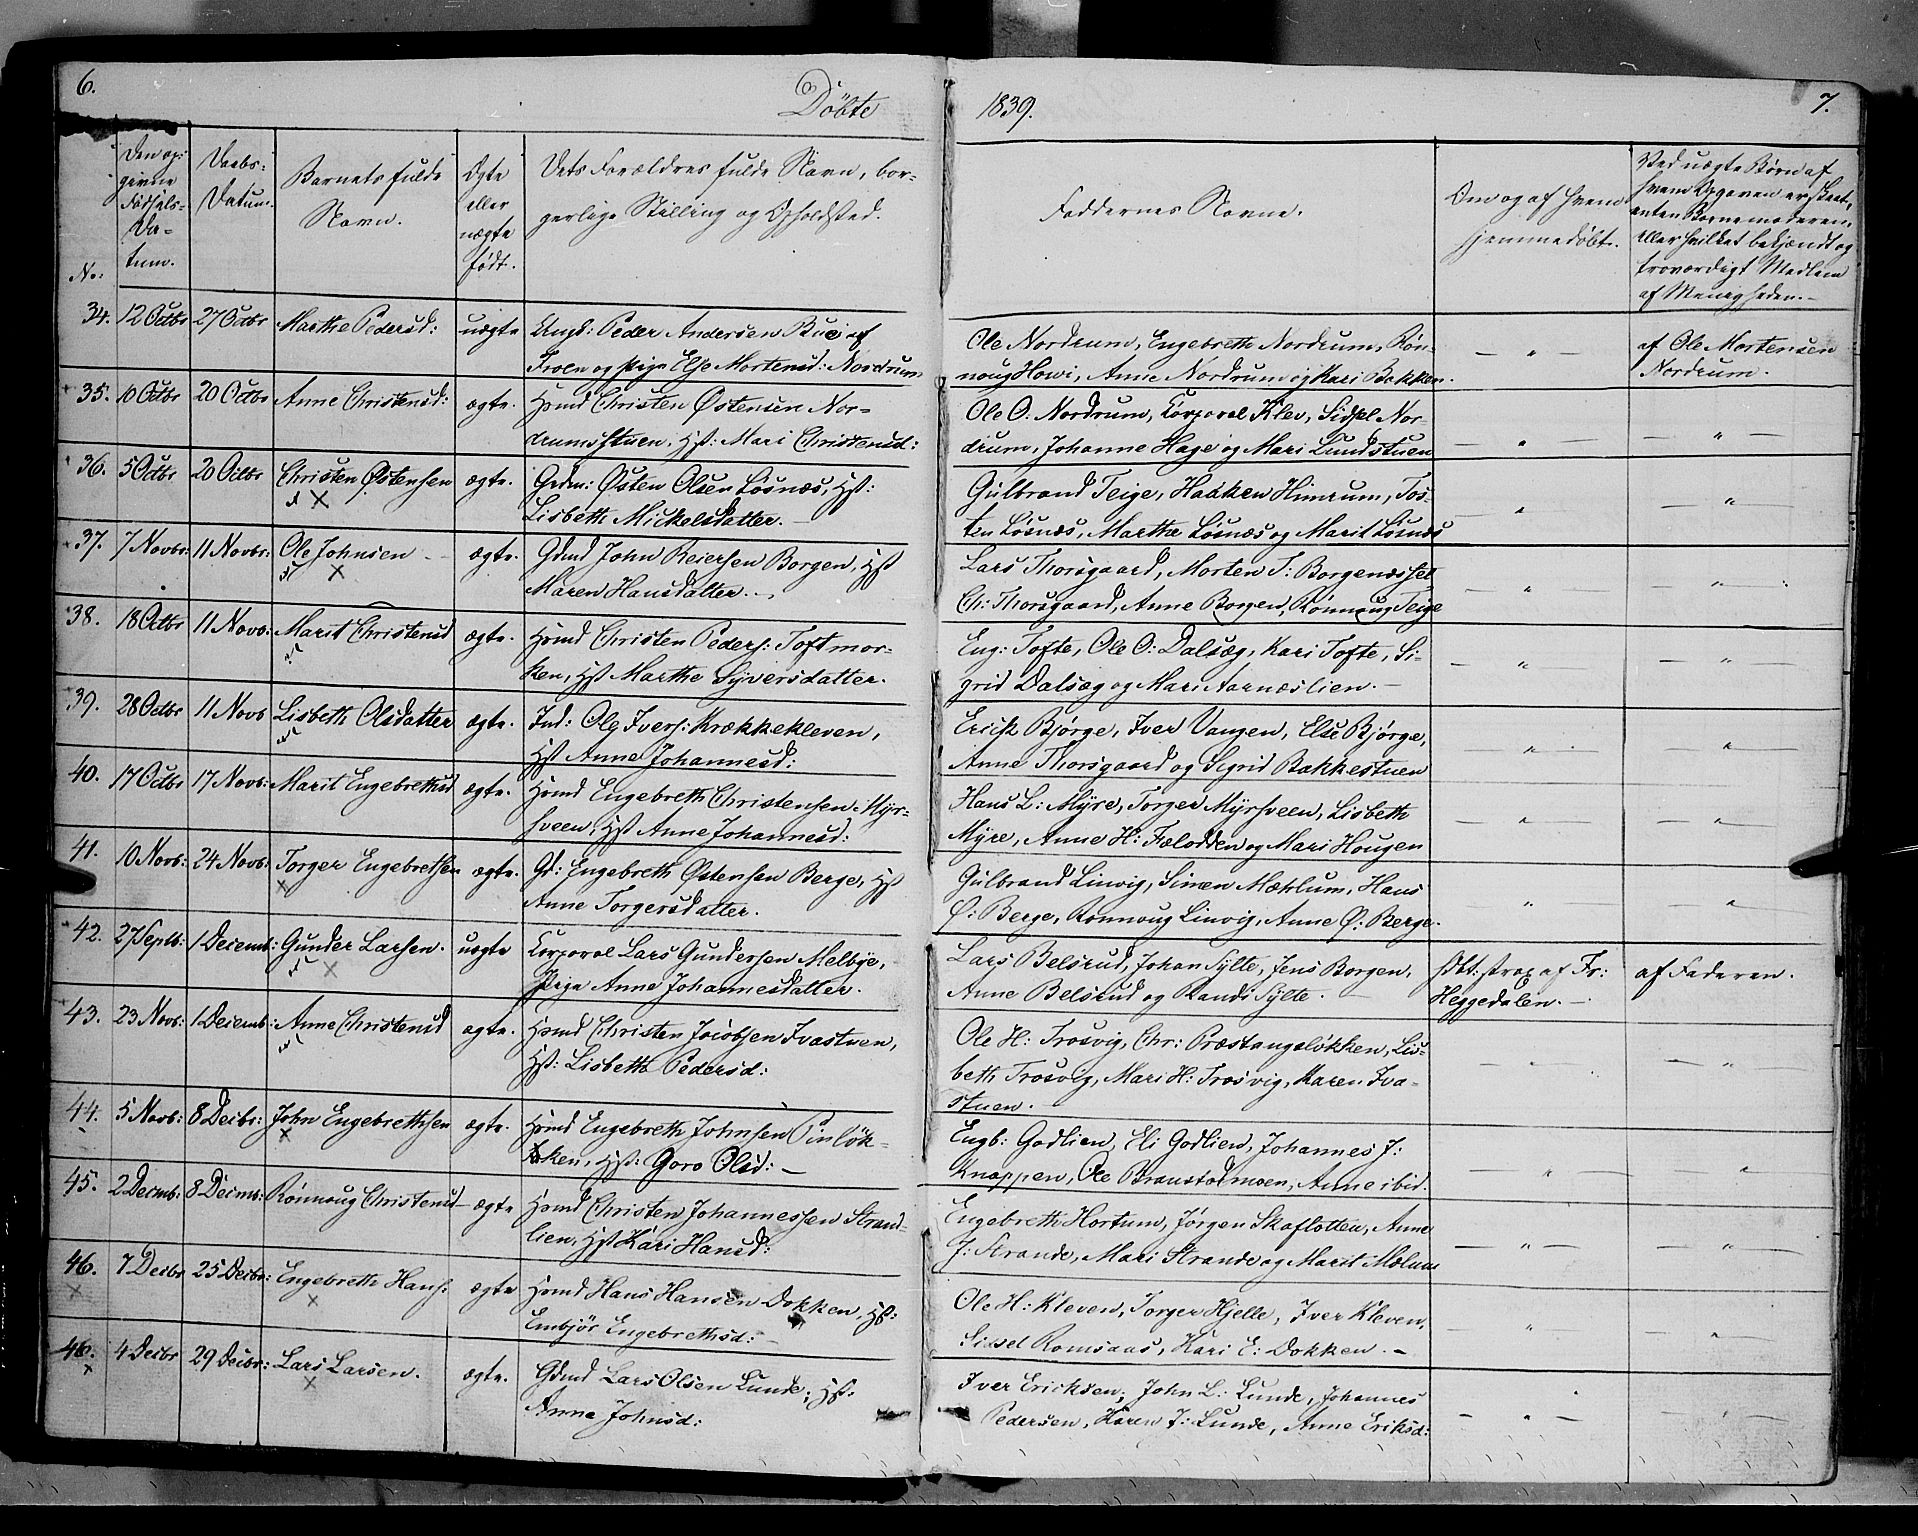 6.
Döbte
1839.
7.
No:
Den op-
givne
Fødsels-
Da-
tum.
Daabs-
Datum.
Barnets fulde
Navn.
Ægte
eller
uægte
født.
Dets Forældres fulde Navn, bor-
gerlige Stilling og Opholdsted.
Faddernes Navne.
Om og af hvem
hjemmedöbt.
Ved uægte Børn af
hvem Opgaven er skeet,
enten Barnemoderen,
eller hvilket bekjendt og
troværdigt Medlem
af Menigheden.
34. 12 Octbr 27 Octbr Marthe Pedersd: uægte Ungk: Peder Andersen Bue af
Froen og Pige Else Mortensd: Nordrum
Ole Nordrum, Engebreth Nordrum, Røn-
noug Howi, Anne Nordrum og Kari Bakken.
— " —
af Ole Mortensen
Nordrum.
35. 10 Octbr 20 Octbr Anne Christensd: ægte. Hsmd Christen Østensen Nor-
drumsstuen, Hst: Mari Christensd:
Ole O. Nordrum, Corporal Klev, Sidsel Nor-
drum, Johanne Hage og Mari Lundstuen
— " — — " —
36. 5 Octbr 20 Octbr Christen Østensen ægte. Grdm: Østen Olsen Løsnæs, Hst:
Lisbeth Mickelsdatter. —
Gulbrand Teige, Haaken Himrum, Tos-
ten Løsnæs, Marthe Løsnæs og Marit Løsnæs
— " — "
37. 7 Novbr: 11 Novbr: Ole Johnsen ægte. Gdmd John Reiersen Borgen, Hst
Maren Hansdatter. —
Lars Thorsgaard, Morten T: Borgenæsset
Ch: Thorsgaard, Anne Borgen, Rönnoug Teige
— " — — " —
38. 18 Octbr 11 Novb: Marit Christensd ægte. Hsmd Christen Peders: Toftmor-
ken, Hst Marthe Syversdatter.
Eng: Tofte, Ole O: Dalsæg, Kari Tofte, Si-
grid Dalsæg og Mari Aarnæslien. —
— " — — " —
39. 28 Octbr 11 Novb Lisbeth Olsdatter ægte. Ind: Ole Ivers: Krækkekleven,
Hst Anne Johannesd:
Erick Bjørge, Iver Vangen, Else Bjørge,
Anne Thorsgaard og Sigrid Bakkestuen
— " — — " —
40. 17 Octbr 17 Novb: Marit Engebrethsd ægte. Hsmd Engebreth Christensen Myr-
hveen, Hst Anne Johannesd:
Hans L: Myre, Torger Myrhveen, Lisbeth
Myre, Anne H: Fælodden og Mari Hougen
— " — — " —
41. 10 Novb: 24 Novb: Torger Engebrethsen ægte. Gd: Engebreth Østensen Berge, Hst
Anne Torgersdatter.
Gulbrand Linvig, Simen Mæhlum, Hans
Ø: Berge, Rönnoug Linvig, Anne Ø: Berge.
" "
42. 27 Septb: 1 Decemb: Gunder Larsen. uægte Corporal Lars Gundersen Melbye,
Pige Anne Johannesdatter.
Lars Belsrud, Johan Sylte, Jens Borgen,
Anne Belsrud og Randi Sylte. —
Hdbt: strax af Fr:
Heggedalen. —
af Faderen.
43. 23 Novb: 1 Decemb: Anne Christensd ægte. Hsmd Christen Jacobsen Ivastuen,
Hst: Lisbeth Pedersd:
Ole H: Trosvig, Chr: Præstangsløkken, Lis-
beth Trosvig, Mari H: Trosvig, Karen Iva-
stuen.
— " — — " —
44. 5 Novb: 8 Decbr: John Engebrethsen ægte. Hsmd Engebreth Johnsen Pinlök-
ken, Hst: Goro Olsd: —
Engb: Godlien, Eli Godlien, Johannes J:
Knappen, Ole Braustadmoen, Anne ibid.
— " — "
45. 2 Decmb: 8 Decmb: Rönnoug Christensd ægte Hsmd Christen Johannessen Strand-
lien, Hst Kari Hansd:
Engebreth Hortum, Jörgen Skaflotten, Anne
J: Strande, Mari Strande og Marit Mælum
— " — — " —
46. 7 Decbr 25 Decbr: Engebreth Hans: ægte Hsmd Hans Hansen Dokken, Hst:
Embjör Engebrethsd: —
Ole H: Kleven, Torger Hjelle, Iver Kleven,
Sidsel Romsaas, Kari E: Dokken. —
— " — — " —
46. 4 Decbr 29 Decbr: Lars Larsen. ægte. Gdmd Lars Olsen Lunde, Hst:
Anne Johnsd:
Iver Ericksen, John L: Lunde, Johannes
Pedersen, Karen J: Lunde, Anne Eriksd:
— " — — " —